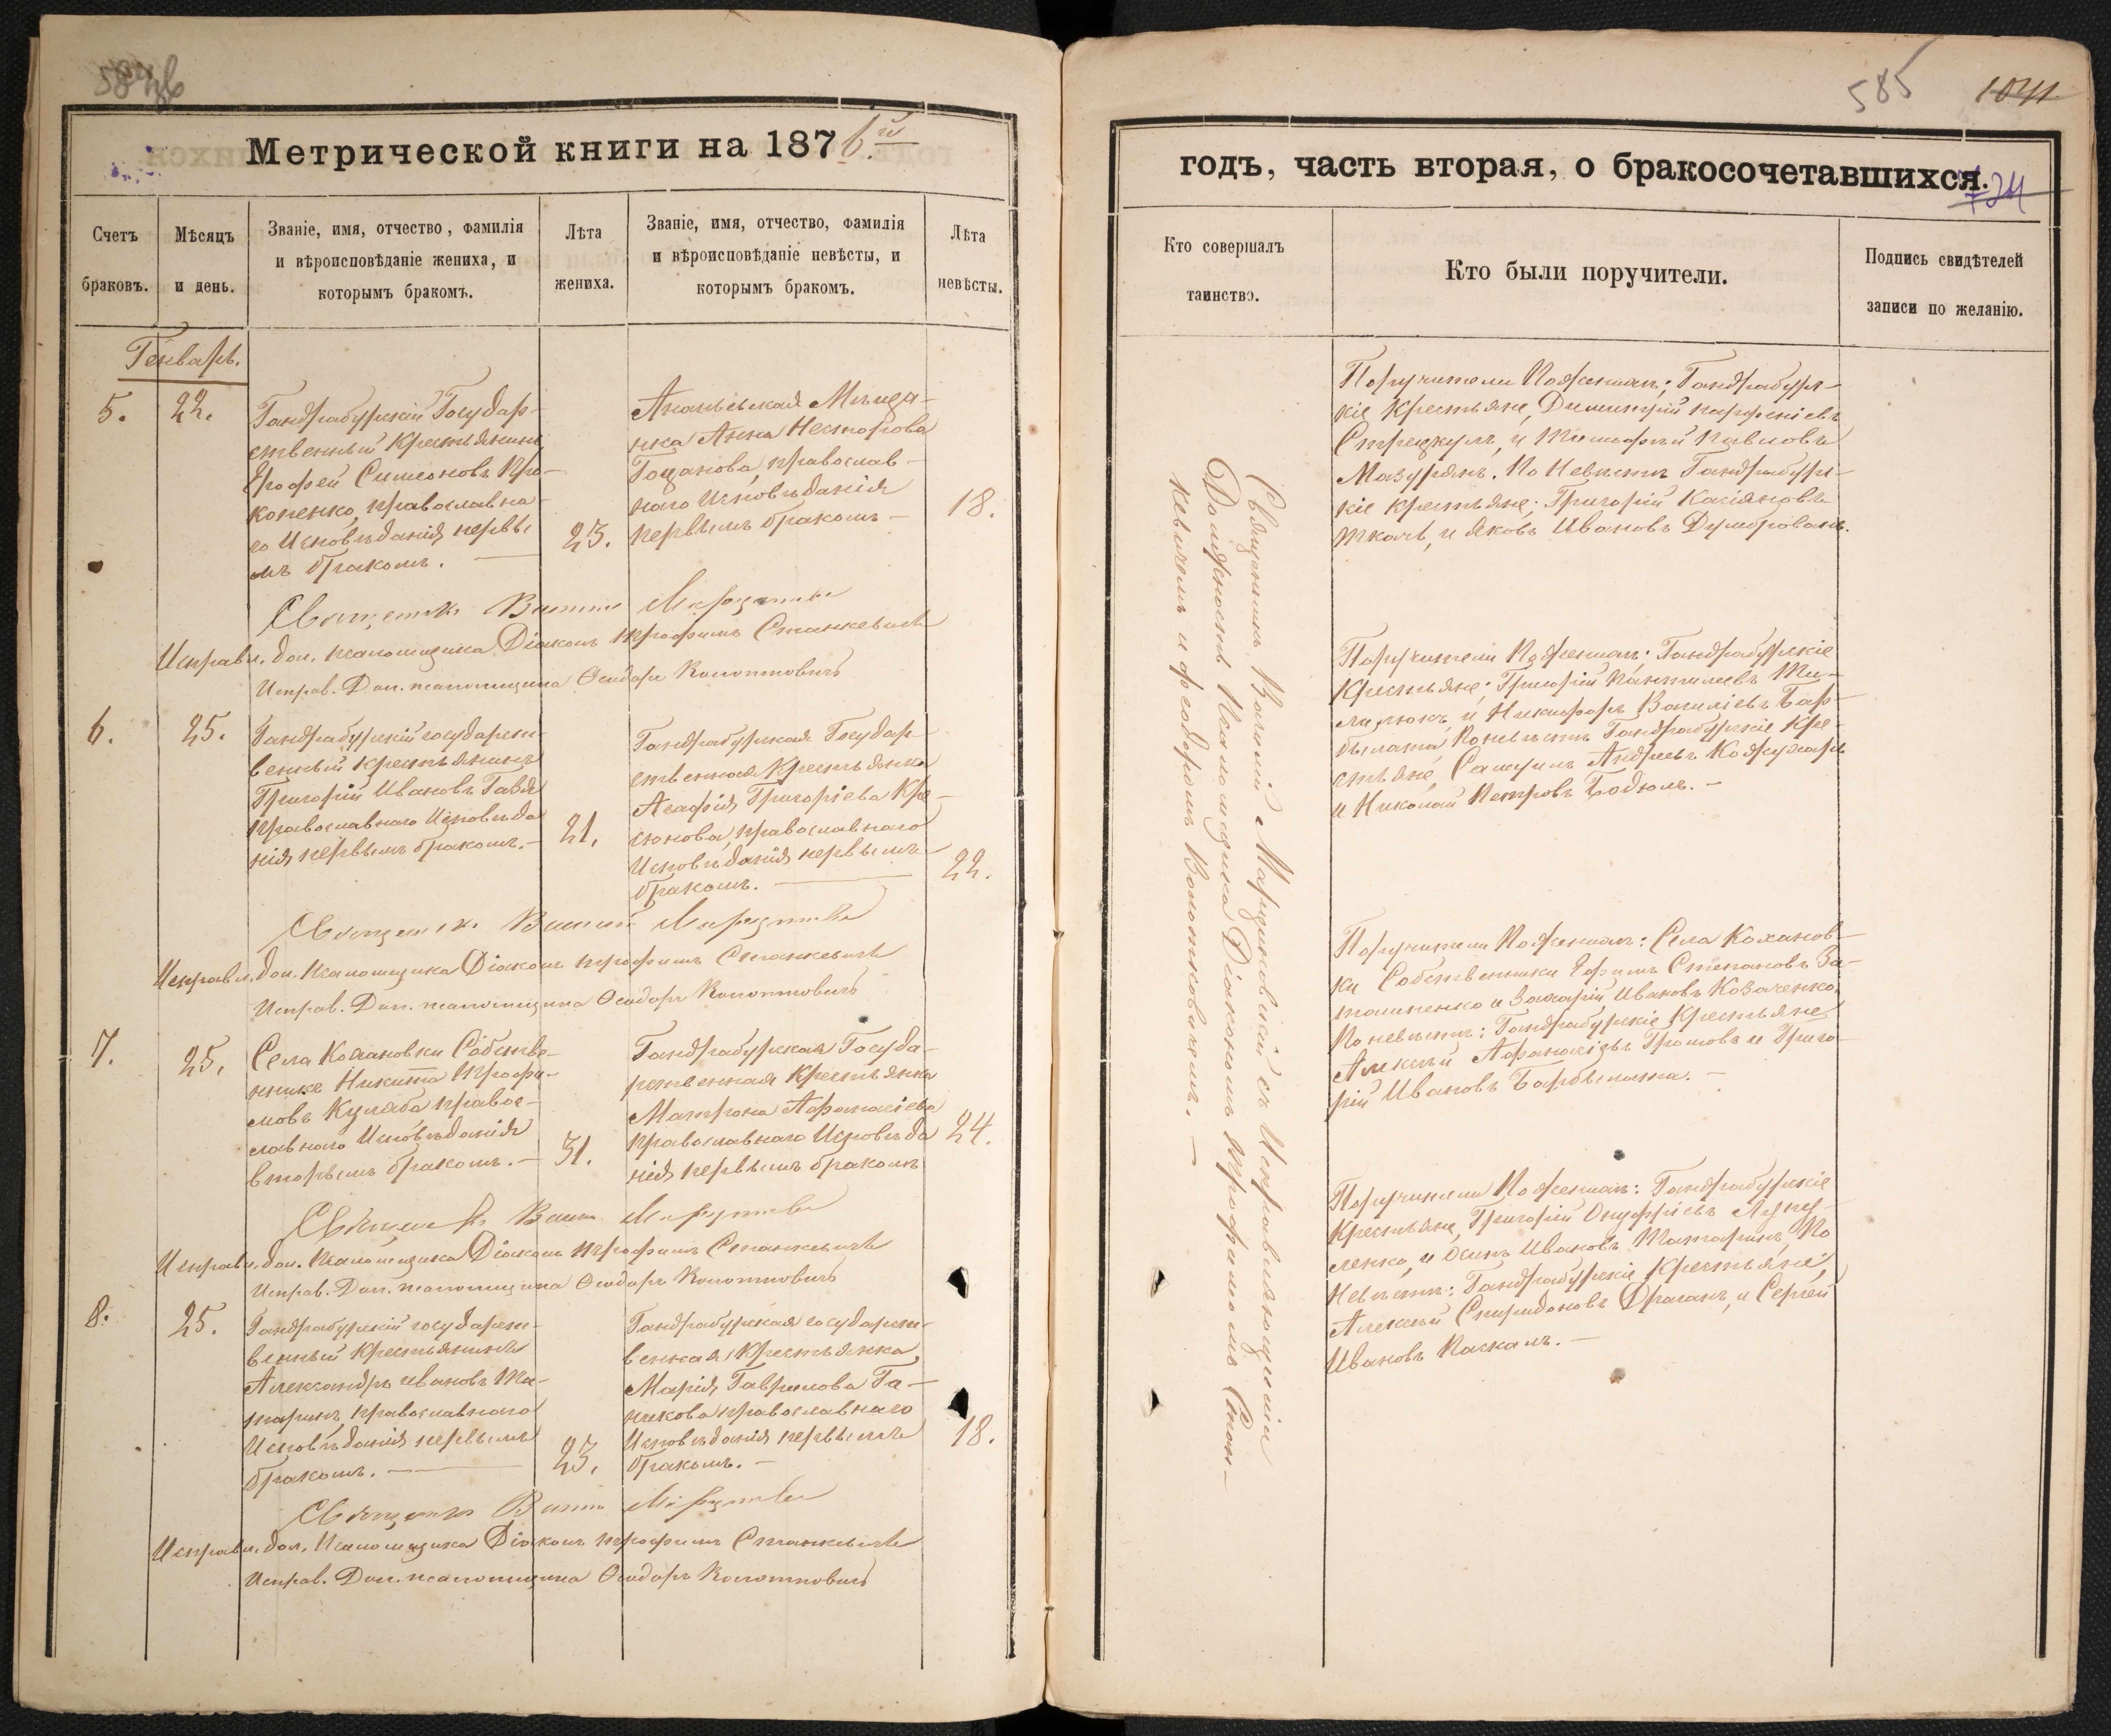 585
1041
724
Метрической книги на 1876.й
годъ, часть вторая, о бракосочетавшихся.
Счетъ браковъ.
Мѣсяцъ и день.
Званіе, имя, отчество, фамилія
и вѣроисповѣданіе жениха, и
которымъ бракомъ.
Лѣта жениха.
Званіе, имя, отчество, фамилія
и вѣроисповѣданіе невѣсты, и
которымъ бракомъ.
Лѣта невѣсты.
Кто совершалъ
таинство.
Кто были поручители.
Подпись свидѣтелей
записи по желанію.
Генварь.
5.
22.
Гандрабурскій Государ-
ственный Крестьянинъ
Ерофей Симеоновъ Про-
копенко, православна-
го Исповѣданія первы
мъ бракомъ.
23.
Ананьевская Мѣща-
нка Анна Несторова
Гоцанова, православ-
наго Исповѣданія
первымъ бракомъ —
18.
Священникъ Василій
Исправл. дол. псаломщика Діаконъ Трофимъ Станкевичъ
Исправ. Дол. псаломщика Ѳеодоръ Колотовичъ
6.
25.
Гандрабурскій государст-
венный крестьянинъ
Григорій Ивановъ Гавда
православнаго Исповѣда
нія первымъ бракомъ. —
21.
Гандрабурская Государ-
ственная Крестьянка
Агафія Григоріева Кре-
сюнова, православнаго
Исповѣданія первымъ
бракомъ. —
22.
Священникъ Василій
Исправл. дол. Псаломщика Діаконъ Трофимъ Станкевичъ
Исправ. Дол. псаломщика Ѳеодоръ Колотовичъ
7.
25.
Села Кохановки Собстве-
нникъ Никита Трофи-
мовъ Куляба правос-
лавнаго Исповѣданія
вторымъ бракомъ. —
31.
Гандрабурская Госуда-
рственная Крестьянка
Матрона Афанасіева
православнаго Исповѣда
нія первымъ бракомъ
24.
Священникъ Василій
Исправл. дол. Псаломщика Діаконъ Трофимъ Станкевичъ
Исправ. Дол. псаломщика Ѳеодоръ Колотовичъ
8.
25.
Гандрабурскій государст-
венный Крестьянинъ
Александръ Ивановъ Та-
таринъ, православнаго
Исповѣданія первымъ
бракомъ. —
23.
Гандрабурская государст-
венная Крестьянка
Марія Гаврилова Га-
нчкова православнаго
Исповѣданія первымъ
бракомъ. —
18.
Священникъ Василій
Исправл. дол. Псаломщика Діаконъ Трофимъ Станкевичъ
Исправ. Дол. псаломщика Ѳеодоръ Колотовичъ
Священникъ Василій Марциновскій съ Исправляющими
Должность Псаломщика Діакономъ Трофимомъ Стан-
кевичемъ и Ѳеодоромъ Колотовичемъ. —
Поручители По женихѣ: Гандрабурс-
кіе крестьяне, Димитрій Парфеніевъ
Стрецкулъ, и Тимофей Павловъ
Мазурянъ. По Невѣстѣ Гандрабурс-
кіе крестьяне: Григорій Касіяновъ
Ткачъ, и Яковъ Ивановъ Думброванъ.
Поручители По женихѣ: Гандрабурскіе
Крестьяне: Григорій Пантилеевъ Ми-
лисюкъ и Никифоръ Василіевъ Бар-
былата По невѣстѣ Гандрабурскіе Кре-
стьяне, Самуилъ Андреевъ Кожухарь
и Николай Петровъ Бодюлъ. —
Поручители По женихѣ: Села Коханов-
ки Собственники Ефимъ Степановъ За-
ташненко и Захарій Ивановъ Козаченко,
По невѣстѣ: Гандрабурскіе Крестьяне
Алексѣй Афанасіевъ Громовъ и Григо-
рій Ивановъ Барбылата. —
Поручители По женихѣ: Гандрабурскіе
Крестьяне, Григорій Онуфріевъ Лупу-
ленко, и Осипъ Ивановъ Татаринъ, По
Невѣстѣ: Гандрабурскіе Крестьяне,
Алексѣй Спиридоновъ Драганъ, и Сергей
Ивановъ Паскалъ. —